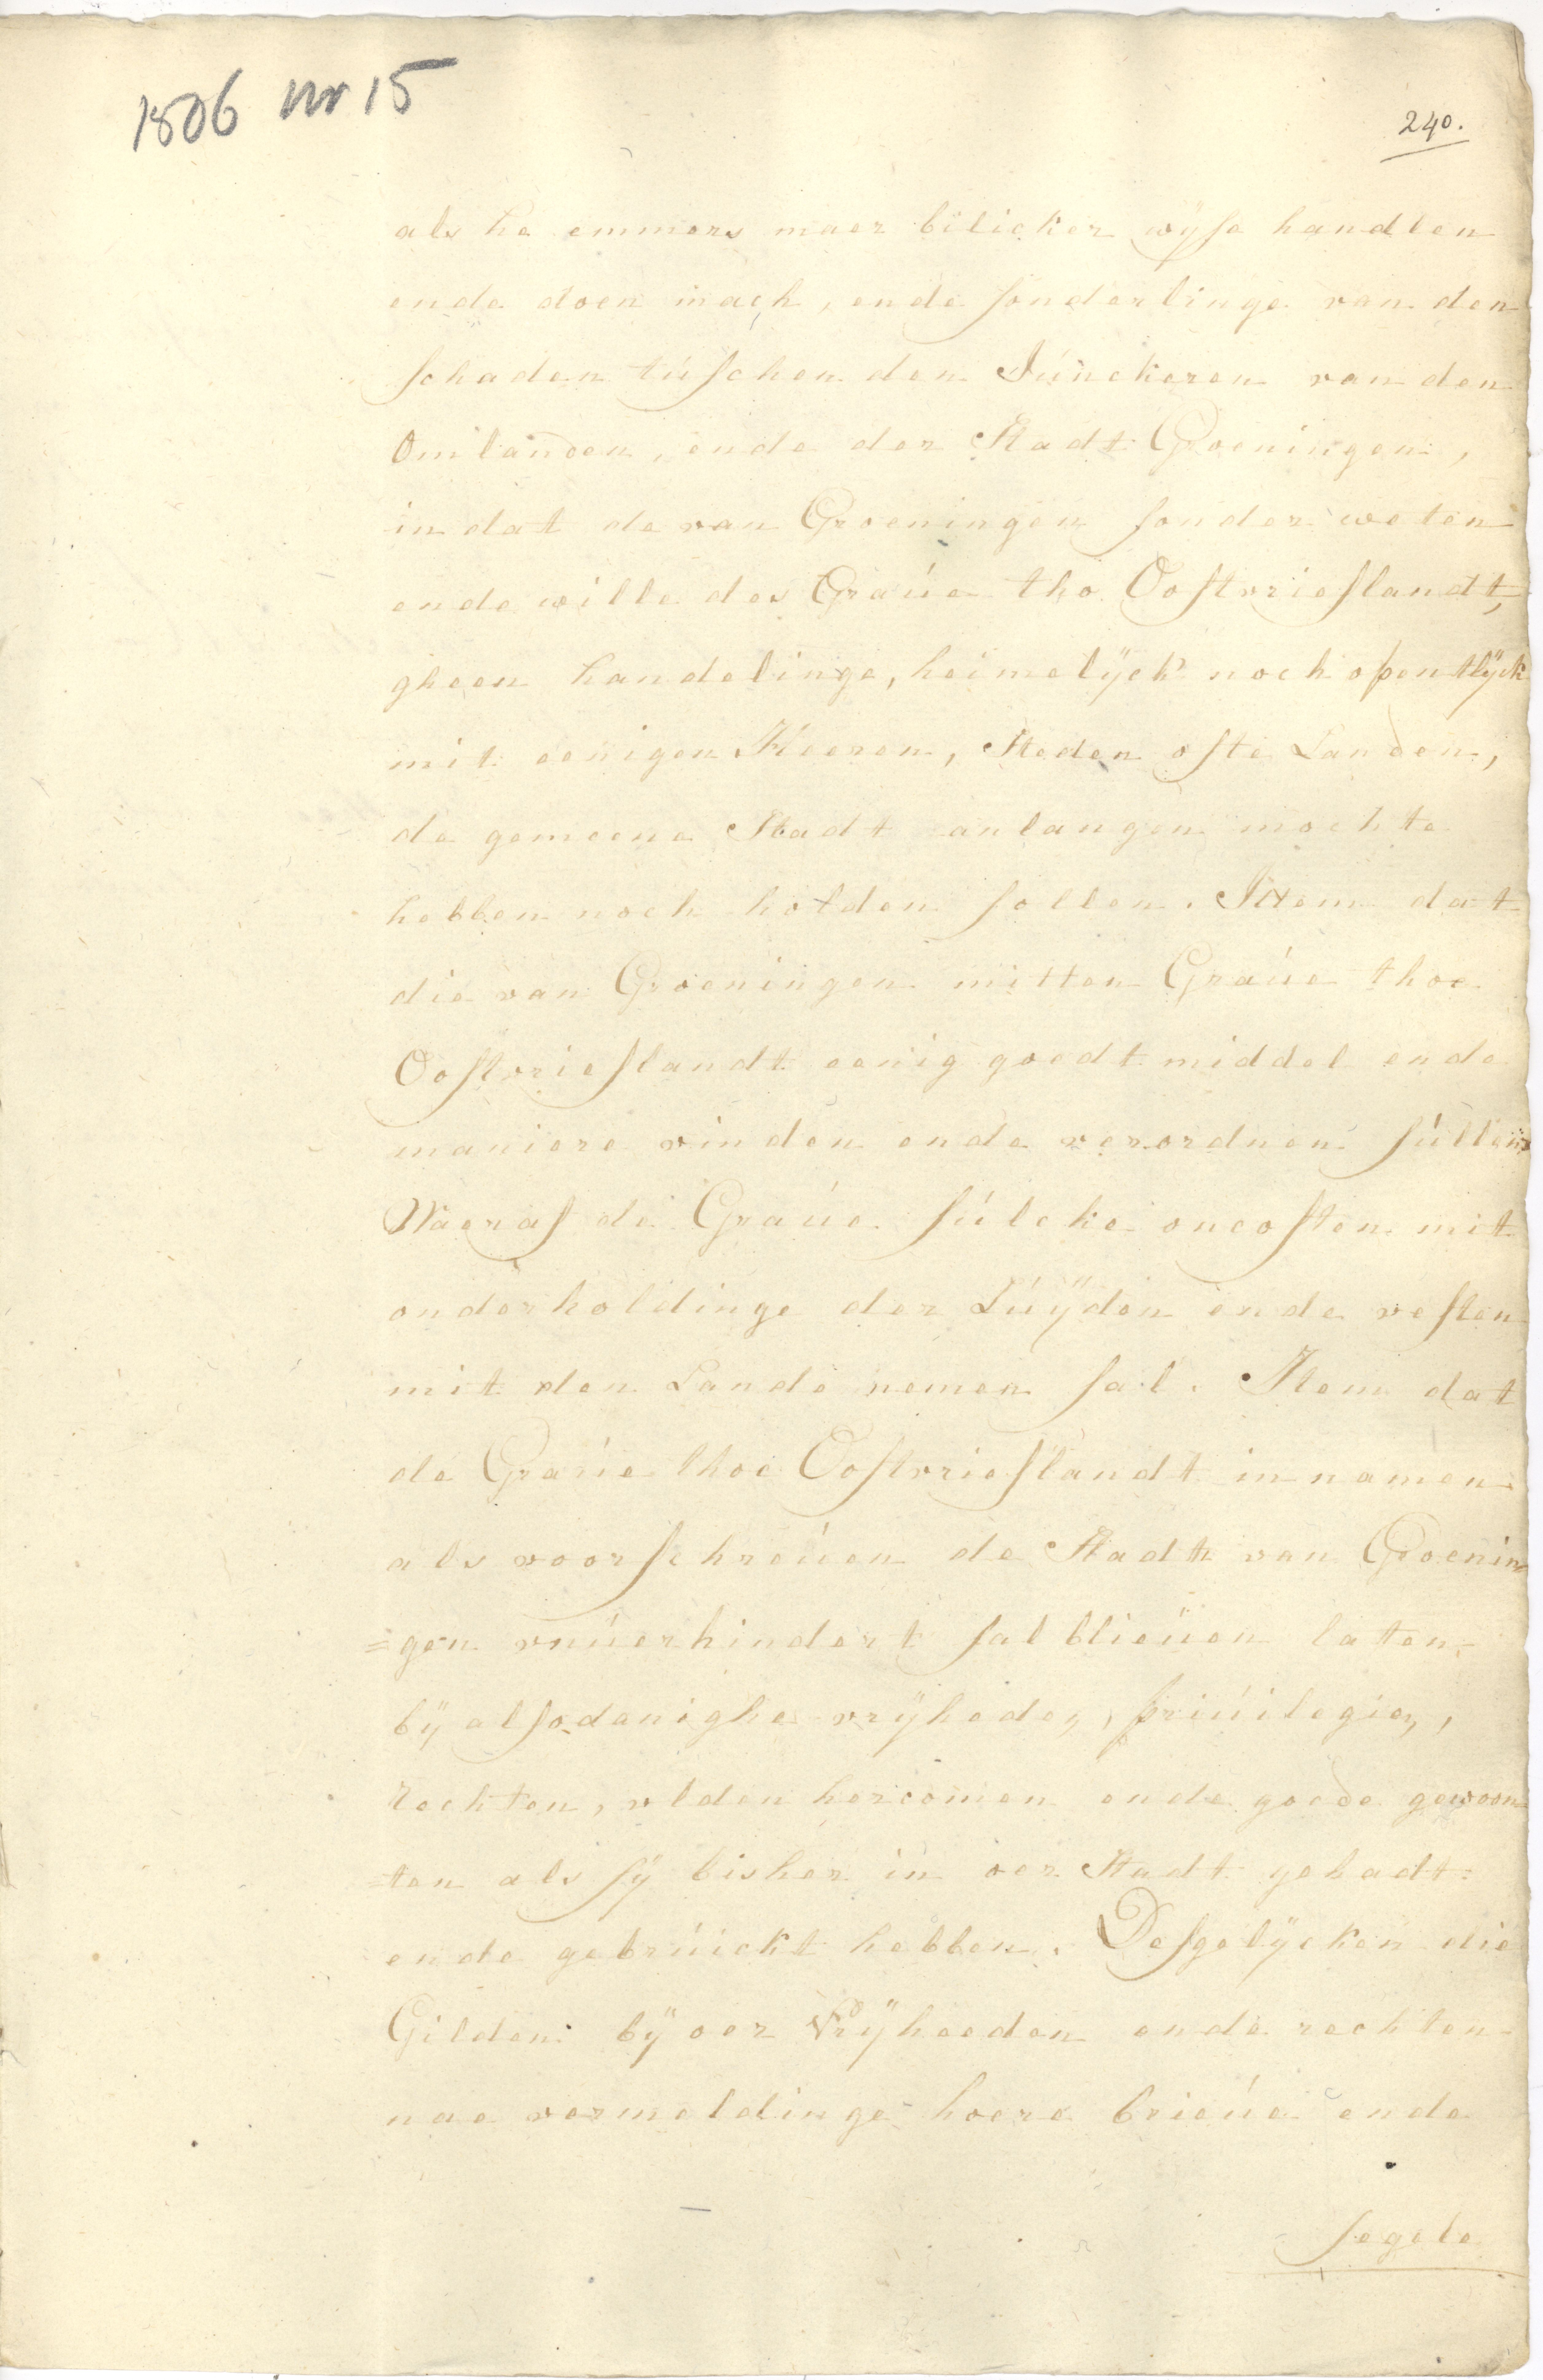 1506 nr 15
240.
als he emmers maer bilicker wÿse handlen
ende doen mach, ende sonderlinge van den
schaden túschen den Júnckeren van den
Omlanden, ende der Stadt Groeningen,
in dat de van Groeningen sonder weten
ende wille des Graúe tho Oostvrieslandt,
gheen handelinge, heimelÿck noch opentlÿck
mit eenigen Heeren, Steden ofte Landen,
de gemeene Stadt anlangen mochte
hebben noch holden sollen. Item dat
die van Groeningen mitten Graúe thoe
Oostvrieslandt eenig goedt middel ende
maniere vinden ende verordnen súllen
Waeraf de Graúe súlcke oncosten mit
onderholdinge der Lúÿden ende vesten
mit den Lande nemen sal. Item dat
de Graúe thoe Oostvrieslandt in namen
als voorschreúen de Stadt van Groenin
=gen vnúerhindert sal blieúen laten
bÿ alsodanighe vrÿheden, priúilegien,
rechten, olden hercomen ende goede gewoon
=ten als sÿ bisher in oer Stadt gehadt
ende gebrúickt hebben. Desgelÿcken die
Gilden bÿ oer Vrÿheeden ende rechten
nae vermeldinge hoere brieúe ende
segele